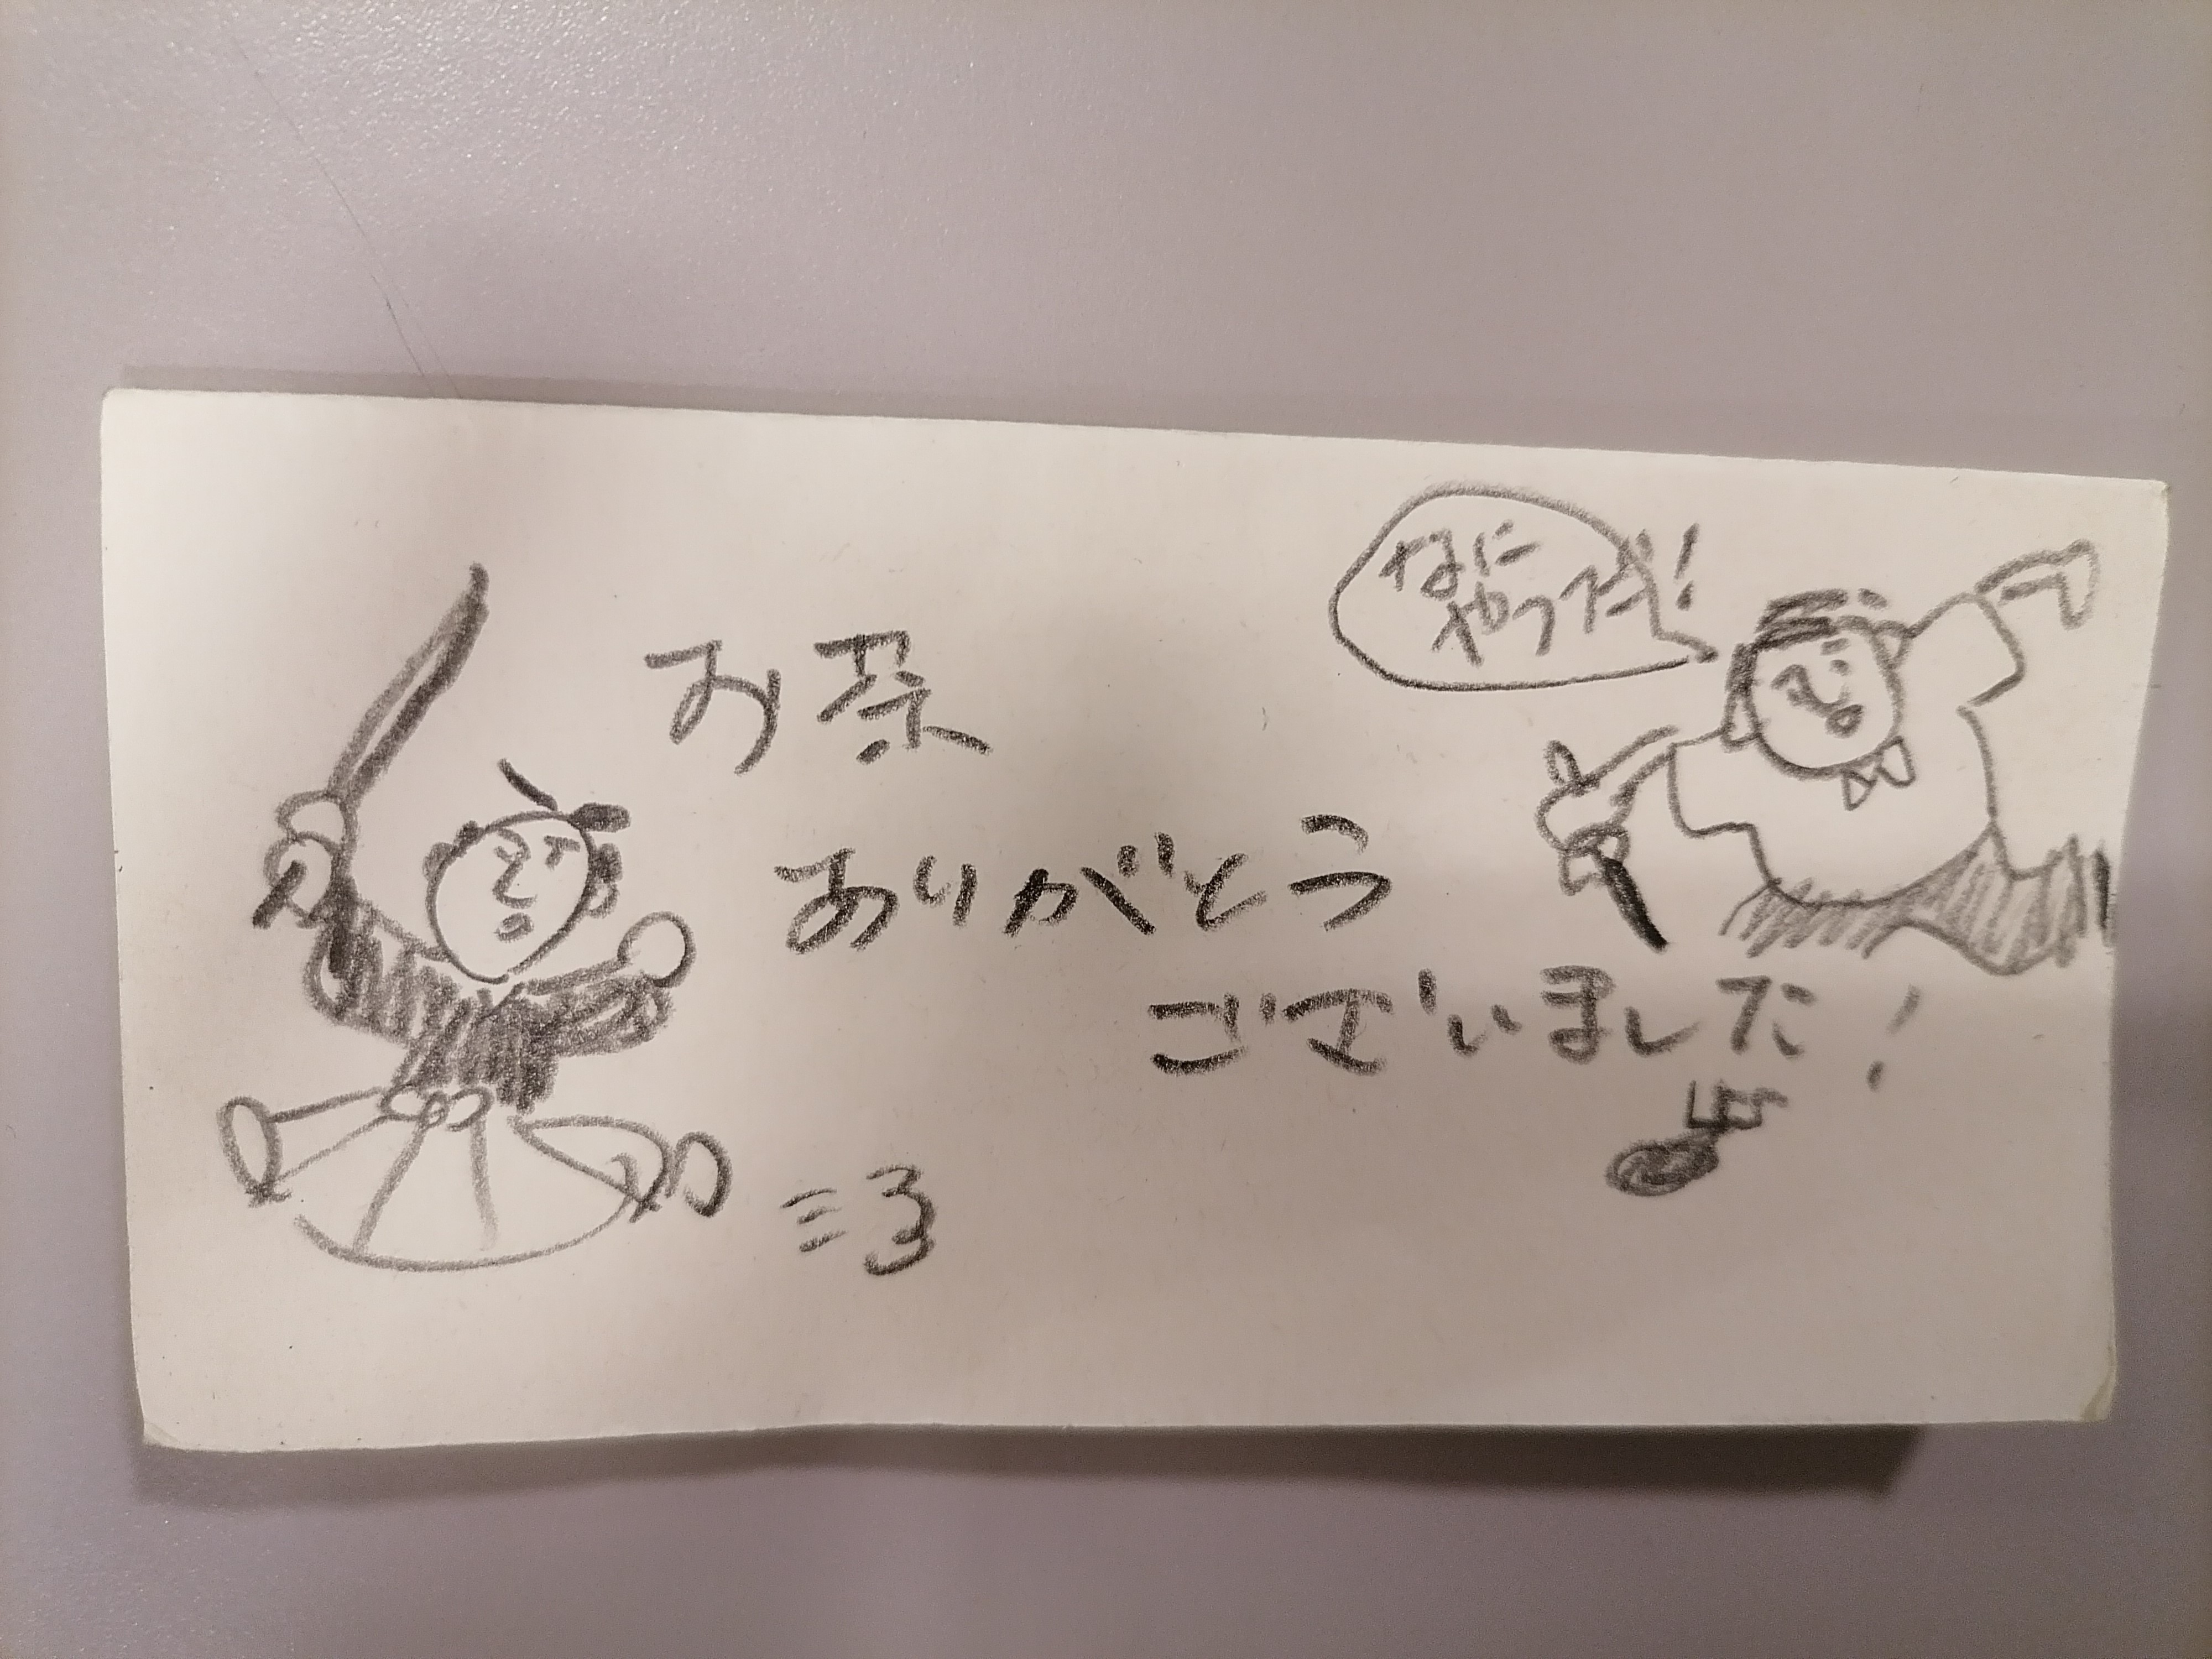 なに
やつだ!
お茶
ありがとう
ございました!